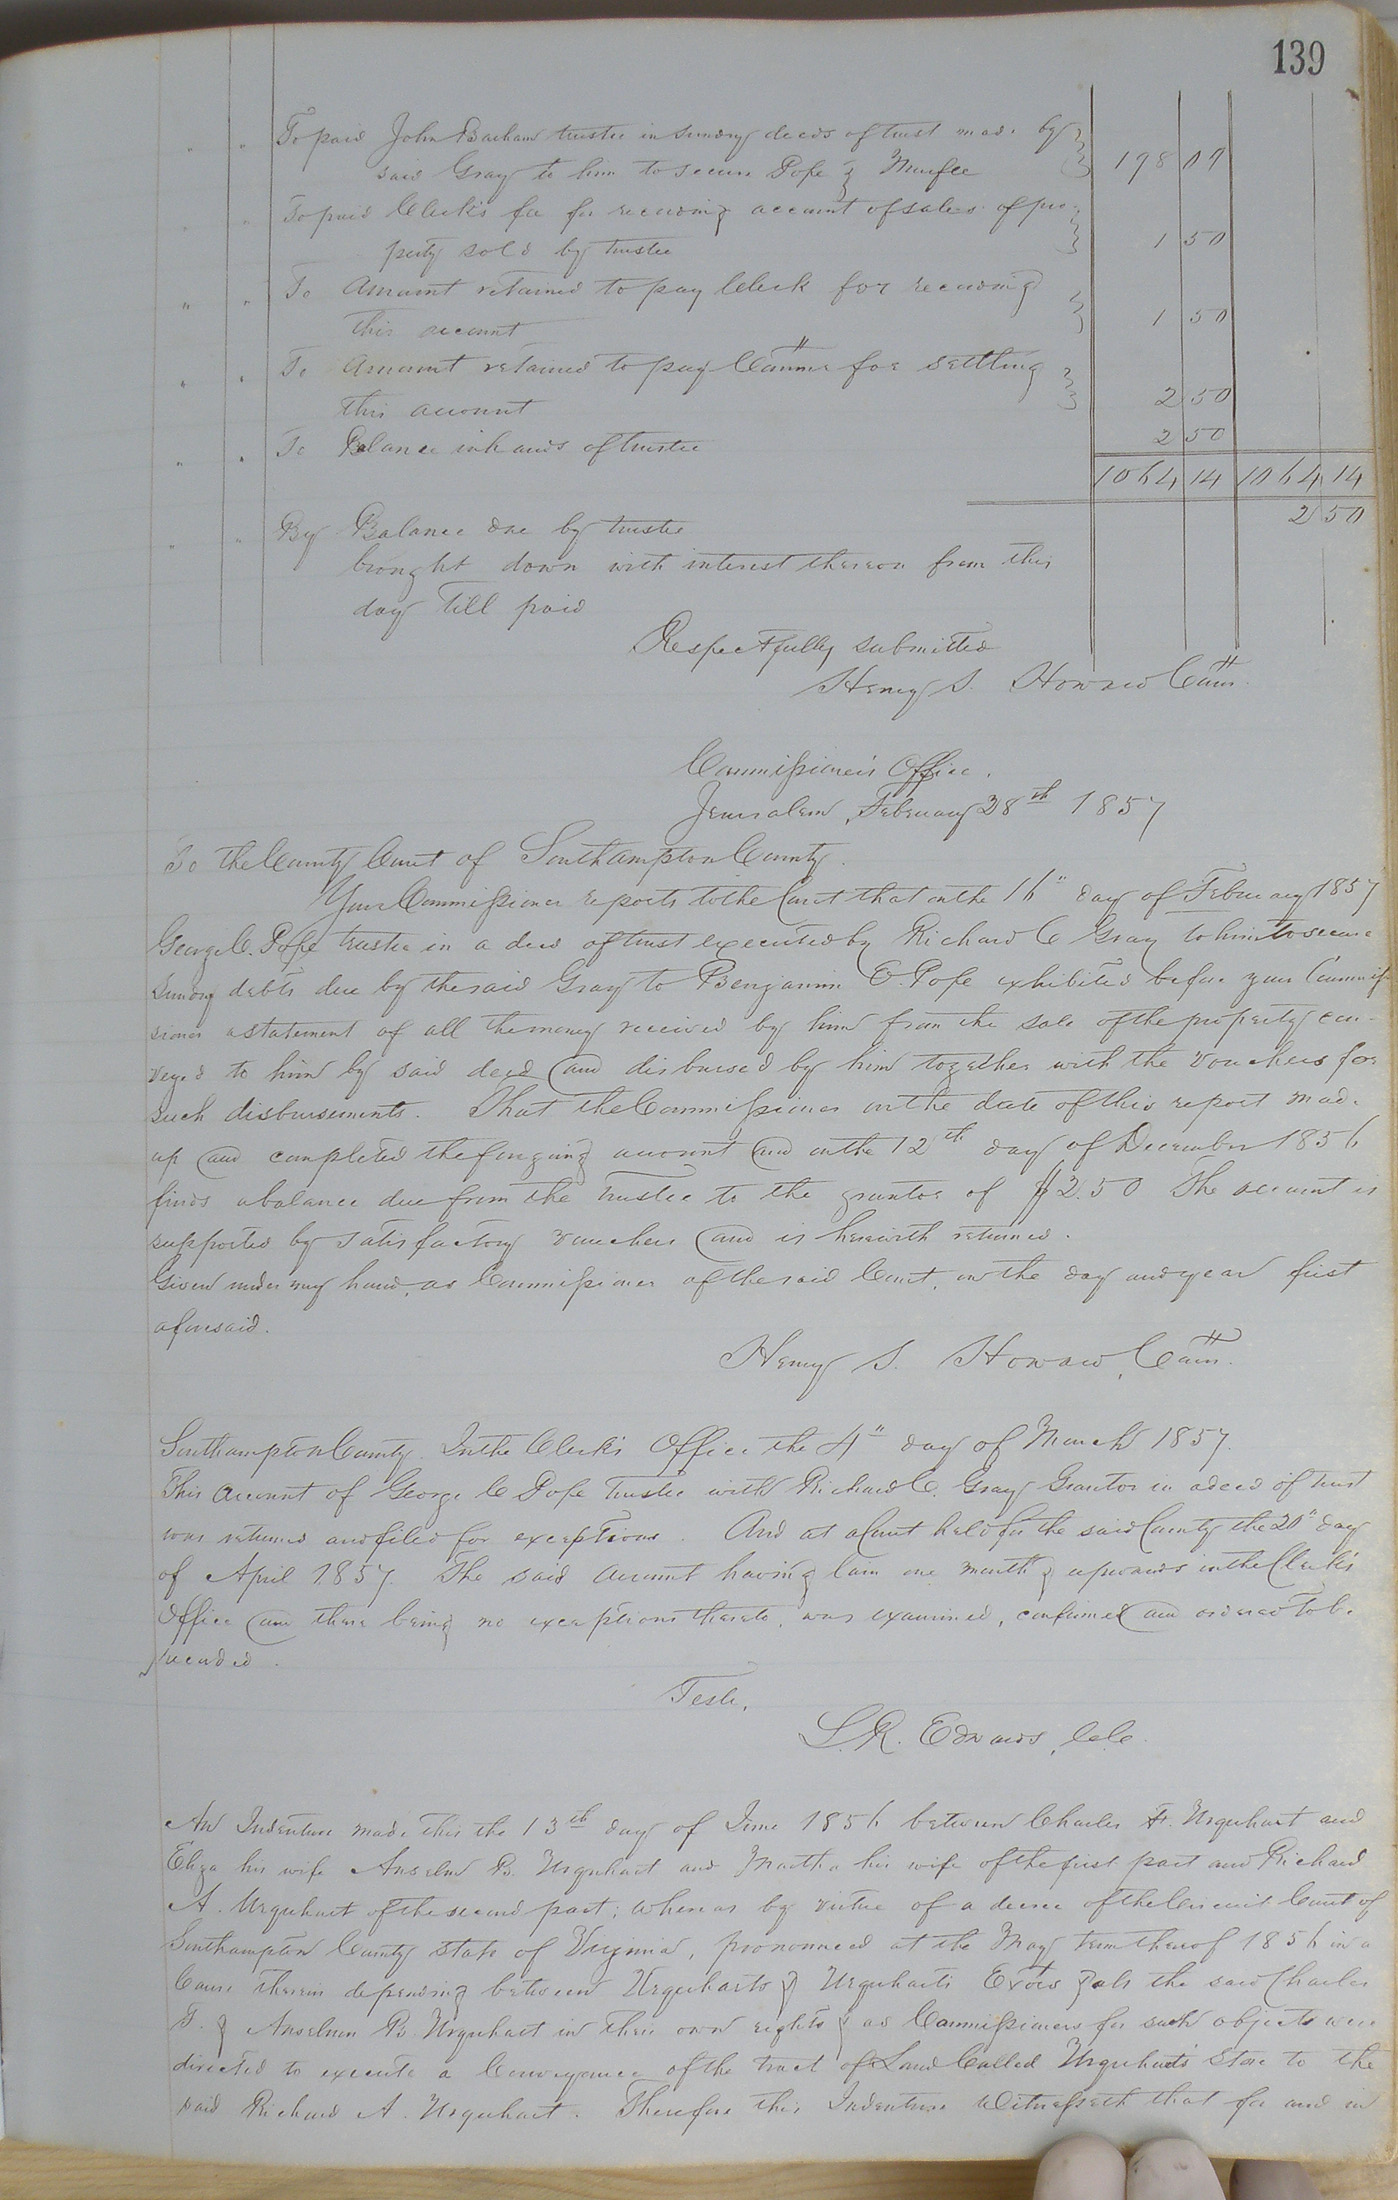 139
" " To paid John Barham trustee in sundry deeds of trust made by
said Gray to him to secure Pope & Murfee 198 09
" To paid Clerk's fee for recording account of sales of pro-
perty sold by trustee 1 50
" " To Amount retained to pay Clerk for recording
this account 1 50
" " To Amount retained to pay Comm^r for settling
this account 2 50
" " To Balance in hands of trustee 2 50
1064 14 1064 14
" " By Balance due by trustee 2 50
brought down with interest thereon from this
day till paid
Respectfully submitted
Henry S. Howard Com^r
Commissioner's Office.
Jerusalem, February 28th 1857
To the County Court of Southampton County.
Your Commissioner reports to the Court that on the 16" day of February 1857
George C. Pope trustee in a deed of trust executed by Richard C Gray to him to secure
sundry debts due by the said Gray to Benjamin E. Pope exhibited before your Commis-
sioner a statement of all the money received by him from the sale of the property con-
veyed to him by said deed and disbursed by him together with the vouchers for
such disbursements. That the Commissioner on the date of this report made
up and completed the foregoing account and on the 12th day of December 1856
finds a balance due from the trustee to the grantor of $2.50 The account is
supported by satisfactory vouchers and is herewith returned.
Given under my hand, as Commissioner of the said Court, on the day and year first
aforesaid.
Henry S. Howard, Com^r.
Southampton County. In the Clerk's Office the 4" day of March 1857.
This Account of George C Pope trustee with Richard C. Gray Grantor in a deed of trust
was returned and filed for exceptions. And at a Court held for the said County the 20" day
of April 1857. The said Account having lain one month & upwards in the Clerk's
Office and there being no exceptions thereto, was examined, confirmed and ordered to be
recorded.
Teste,
L. R. Edwards, C.C.
An Indenture made this the 13th day of June 1856 between Charles F. Urquhart and
Eliza his wife Anselm B. Urquhart and Martha his wife of the first part and Richard
A. Urquhart of the second part; whereas by virtue of a decree of the Circuit Court of
Southampton County State of Virginia, pronounced at the May term thereof 1856 in a
Cause therein depending between Urquharts & Urquharts Exors & als the said Charles
F. & Anselm B. Urquhart in their own rights & as Commissioners for such objects were
directed to execute a Conveyance of the tract of Land Called Urquhart's Store to the
said Richard A. Urquhart. Therefore this Indenture Witnesseth that for and in